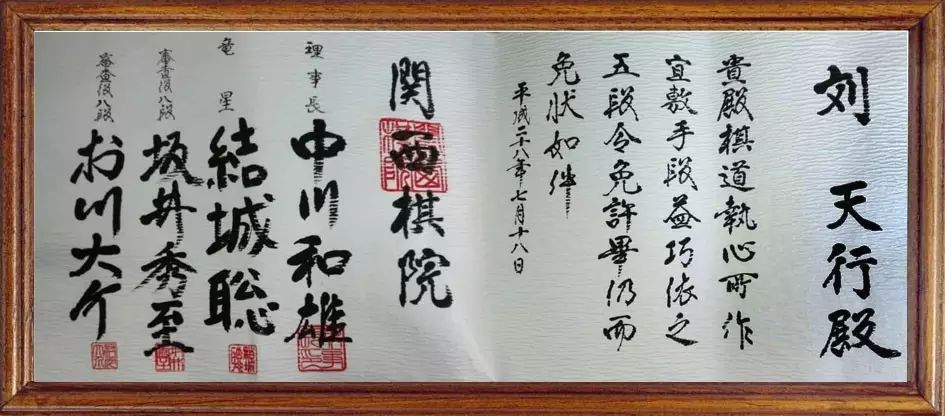 刘 天行殿
貴殿棋道執心所作
宜敷手段益巧依之
五段令免許畢仍而
免状如件
平成二十八年七月十八日
関西棋院
理事長 中川和雄
竜星 結城聡
審査役八段 坂井秀至
審査役八段 村川大介